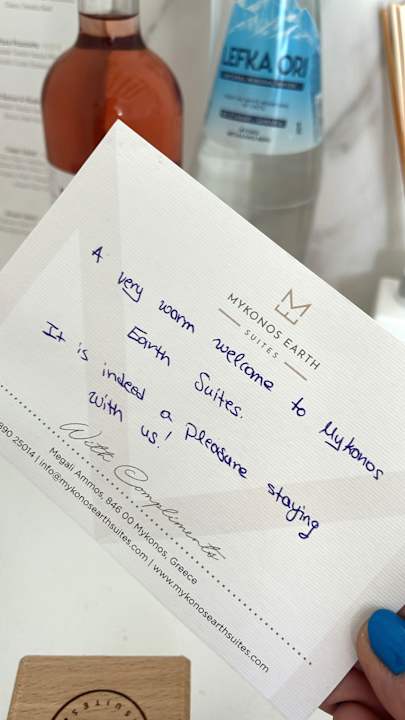 LEFKA ORI
MYKONOS EARTH
SUITES
A very warm welcome to Mykonos
Earth Suites.
It is indeed a pleasure staying
with us!
With Compliments
Megali Ammos, 846 00 Mykonos, Greece
890 25014 | info@mykonosearthsuites.com | www.mykonosearthsuites.com
SUITES